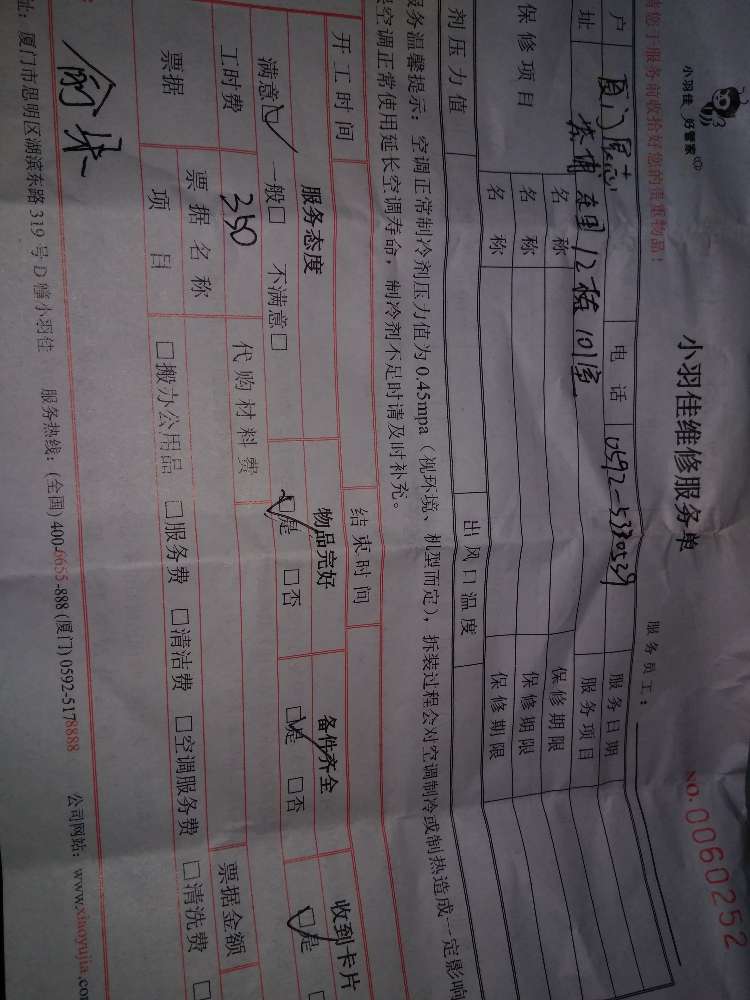 小羽佳 好管家
小羽佳维修服务单
NO. 0060252
请您于服务前收拾好您的贵重物品！
服务员工：
户
电 话 0592-5330539 服务日期
址 12栋101室 服务项目
保修项目 名 称 保修期限
名 称 保修期限
名 称 保修期限
剂压力值 出风口温度
服务温馨提示：空调正常制冷剂压力值为0.45mpa（视环境、机型而定），拆装过程会对空调制冷或制热造成一定影响
空调正常使用延长空调寿命，制冷剂不足时请及时补充。
开工时间 结束时间
服务态度 物品完好 备件齐全 收到卡片
满意☑ 一般□ 不满意□ ☑是 □否 ☑是 □否 ☑是 □
工时费 350 代购材料费 票据金额
票据 票据名称
项 目 □搬办公用品 □服务费 □清洁费 □空调服务费 □清洗费 □
址：厦门市思明区湖滨东路319号D幢小羽佳 服务热线：(全国) 400-6655-888 (厦门) 0592-5178888 公司网站：www.xiaoyujia.com